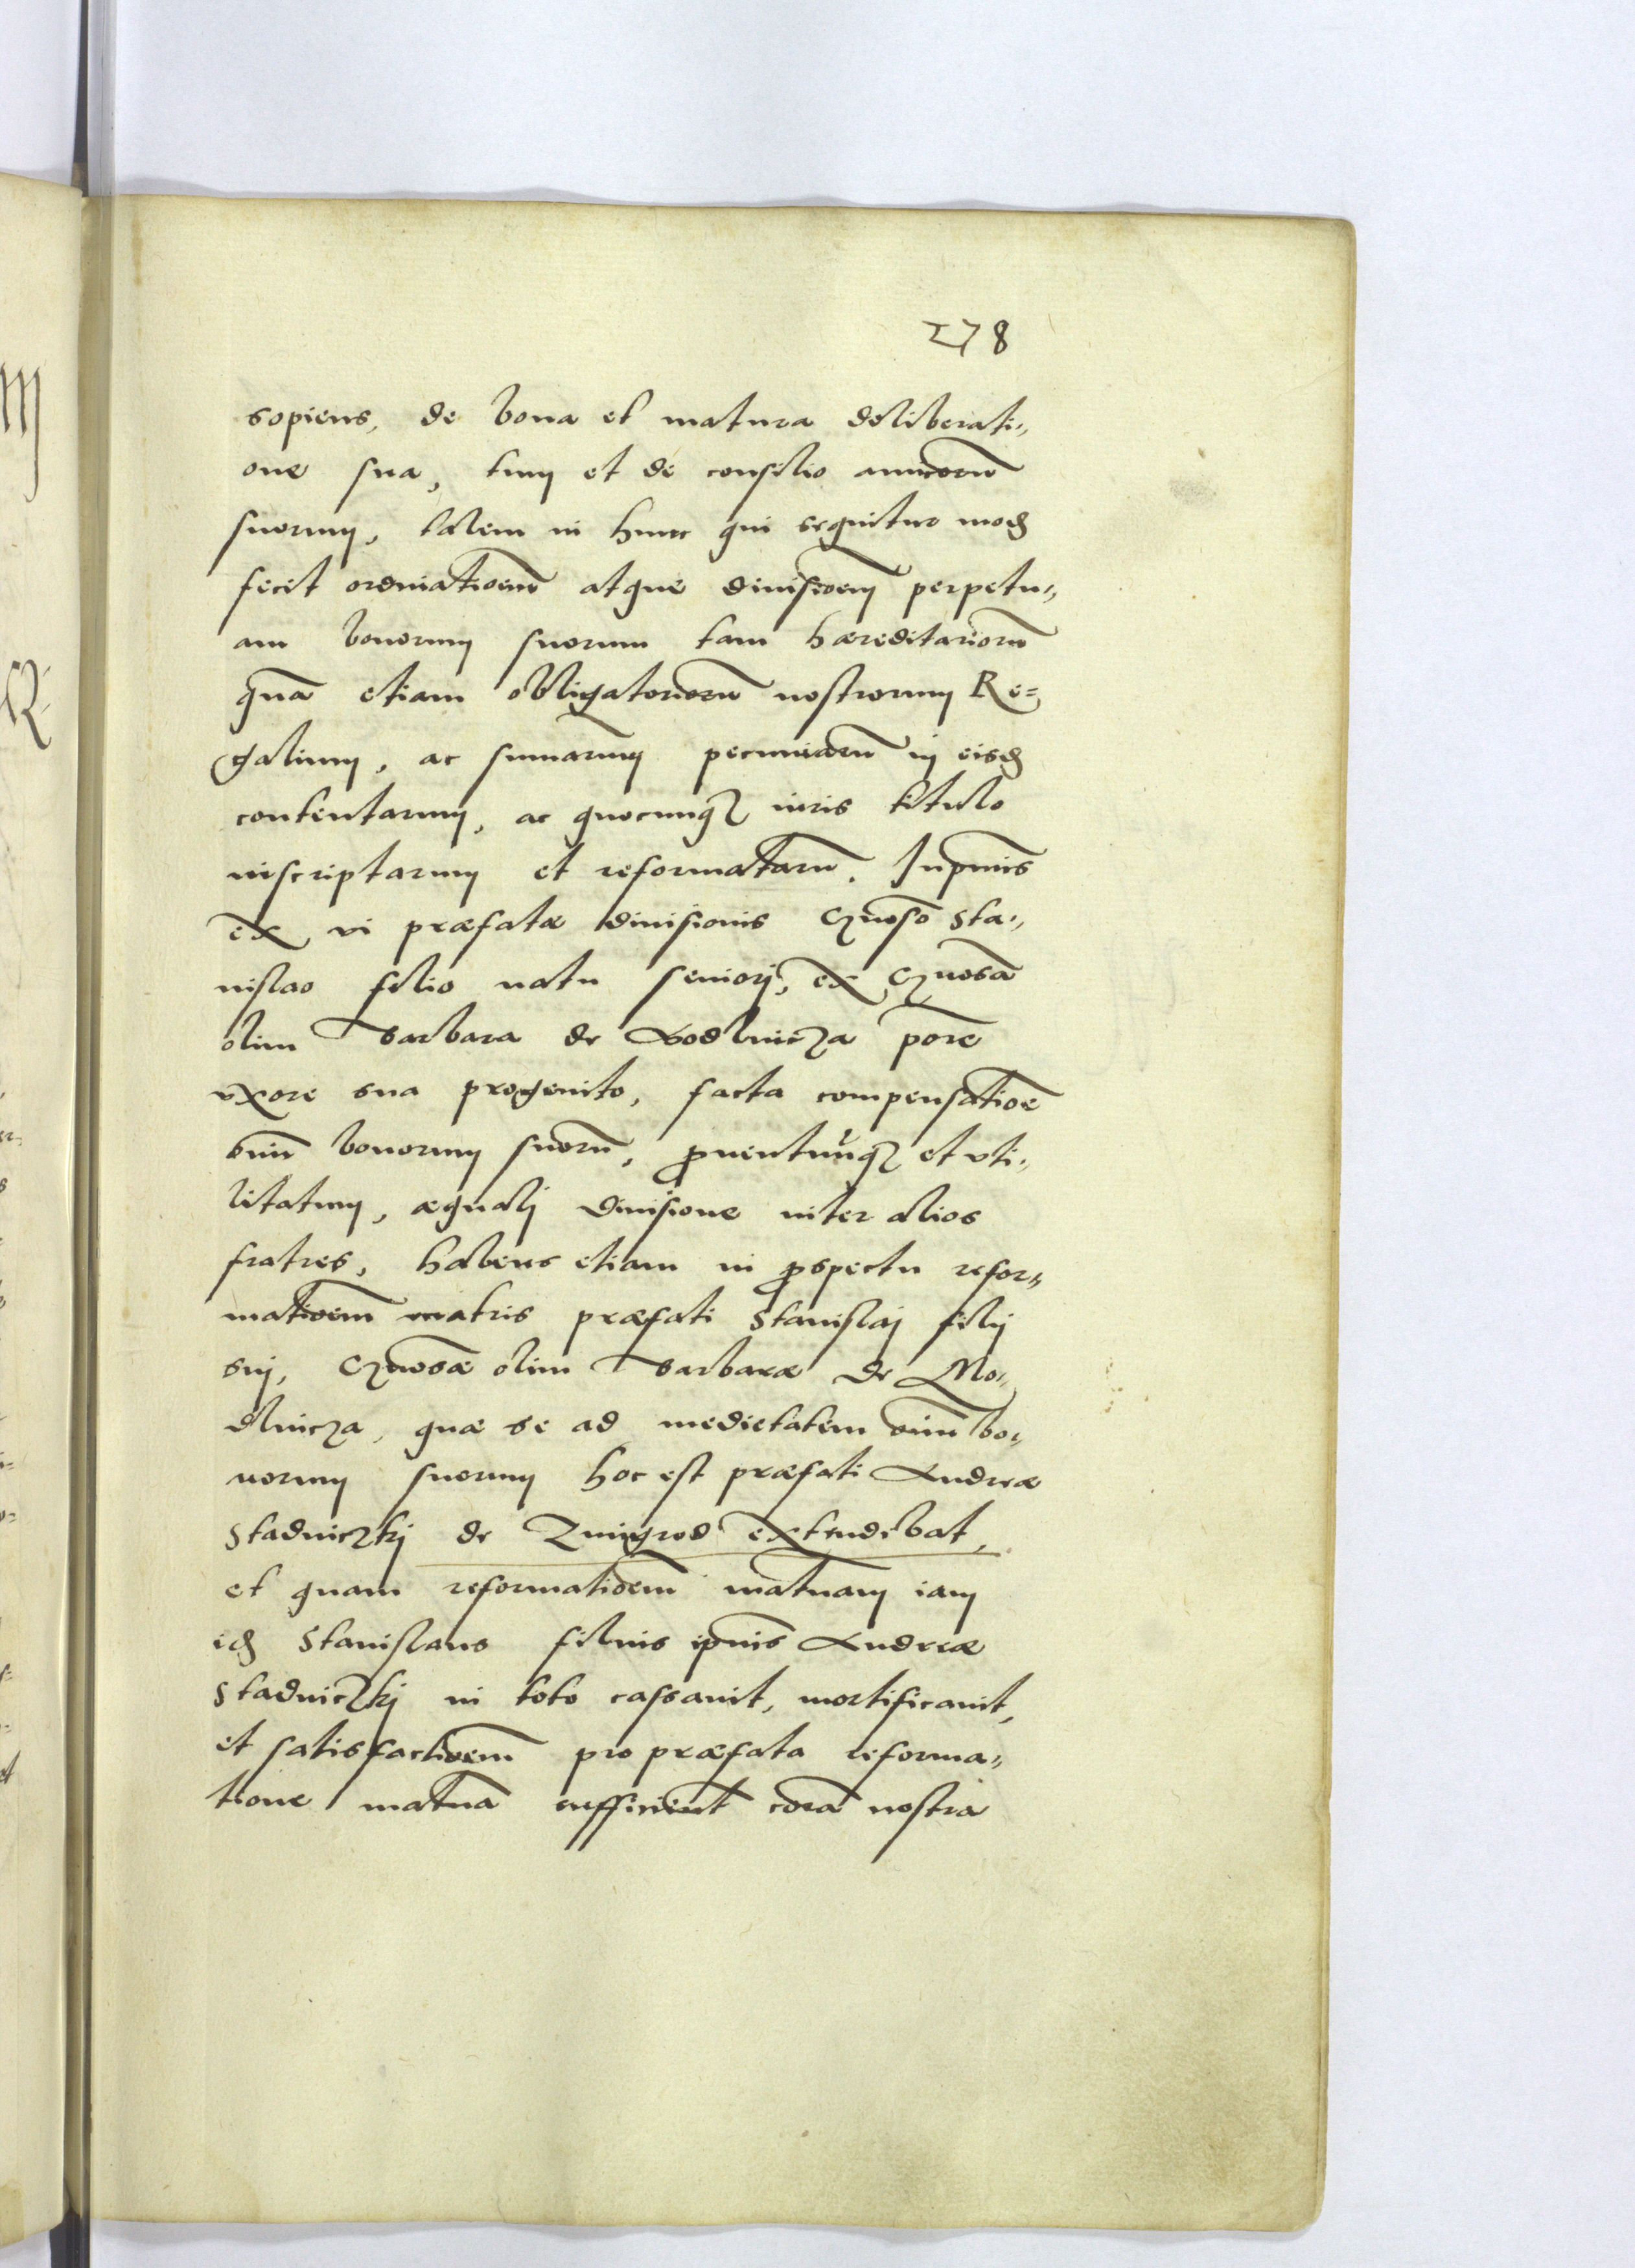 278
sopiens, de bona et matura deliberati„
one sua, tum et de consilio amicorū
suorum, talem in hunc qui sequitur modꝫ
fecit ordinatioem̄ atque diuisioem̄ perpetu„
am bonorum suorum tam hæreditariorū
quā etiam obligatoriorū nostrorum Re=
galium, ac sum̄arum pecuniarū in eisdꝫ
contentarum, ac quocunqꝫ iuris titulo
inscriptarum et reformatarū. Inprimis
ex vi præfatæ diuisionis Gn̄oso Sta„
nislao filio natu seniorj, ex Gn̄osa
olim Barbara de Modlnicza pore
vxore sua progenito, facta compensatioe
oim̄ bonorum suorū, ꝓuentuūqꝫ et vti„
litatum, æqualj diuisione inter alios
fratres, habens etiam in ꝓspectu refor„
matioem̄ matris præfati Stanislaj filij
sui, Gn̄osæ olim Barbaræ de Mo„
dlnicza, quæ se ad medietatem oim̄ bo„
norum suorum hoc est præfati Andreæ
Stadniczkj de Zmigrod extendebat,
et quam reformatioem̄ maternam iam
idꝫ Stanislaus filius ipius Andreæ
Stadniczkj in toto cassauit, mortificauit,
et satisfactioem̄ pro præfata reforma„
tione materna sufficient corā nostra